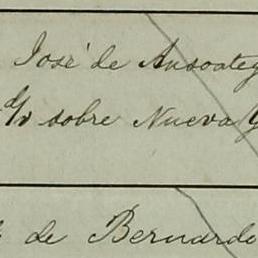 José de Ansoateg
d/v sobre Nueva Y
de Bernardo